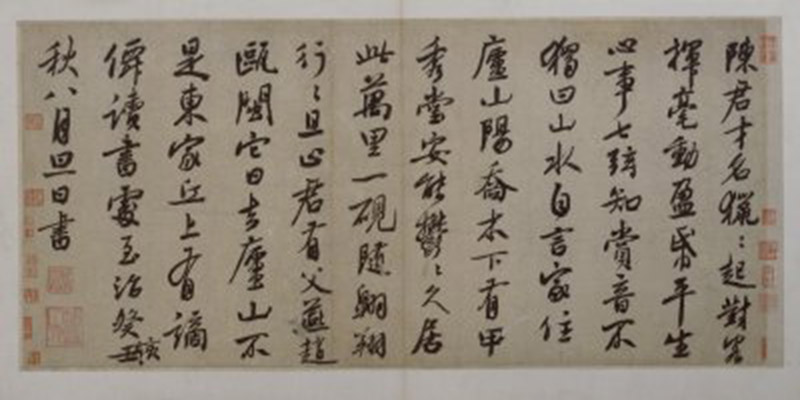 陳君才名獵〻起對客
揮毫動盈帋平生
心事七弦知賞音不
獨曰山水自言家住
廬山陽喬木下有甲
秀堂安能鬱〻久居
此萬里一硯隨翱翔
行〻且止君有父燕趙
甌閩它日去廬山不
是東家丘上有謫
僊讀書處至治癸亥
秋八月四日書